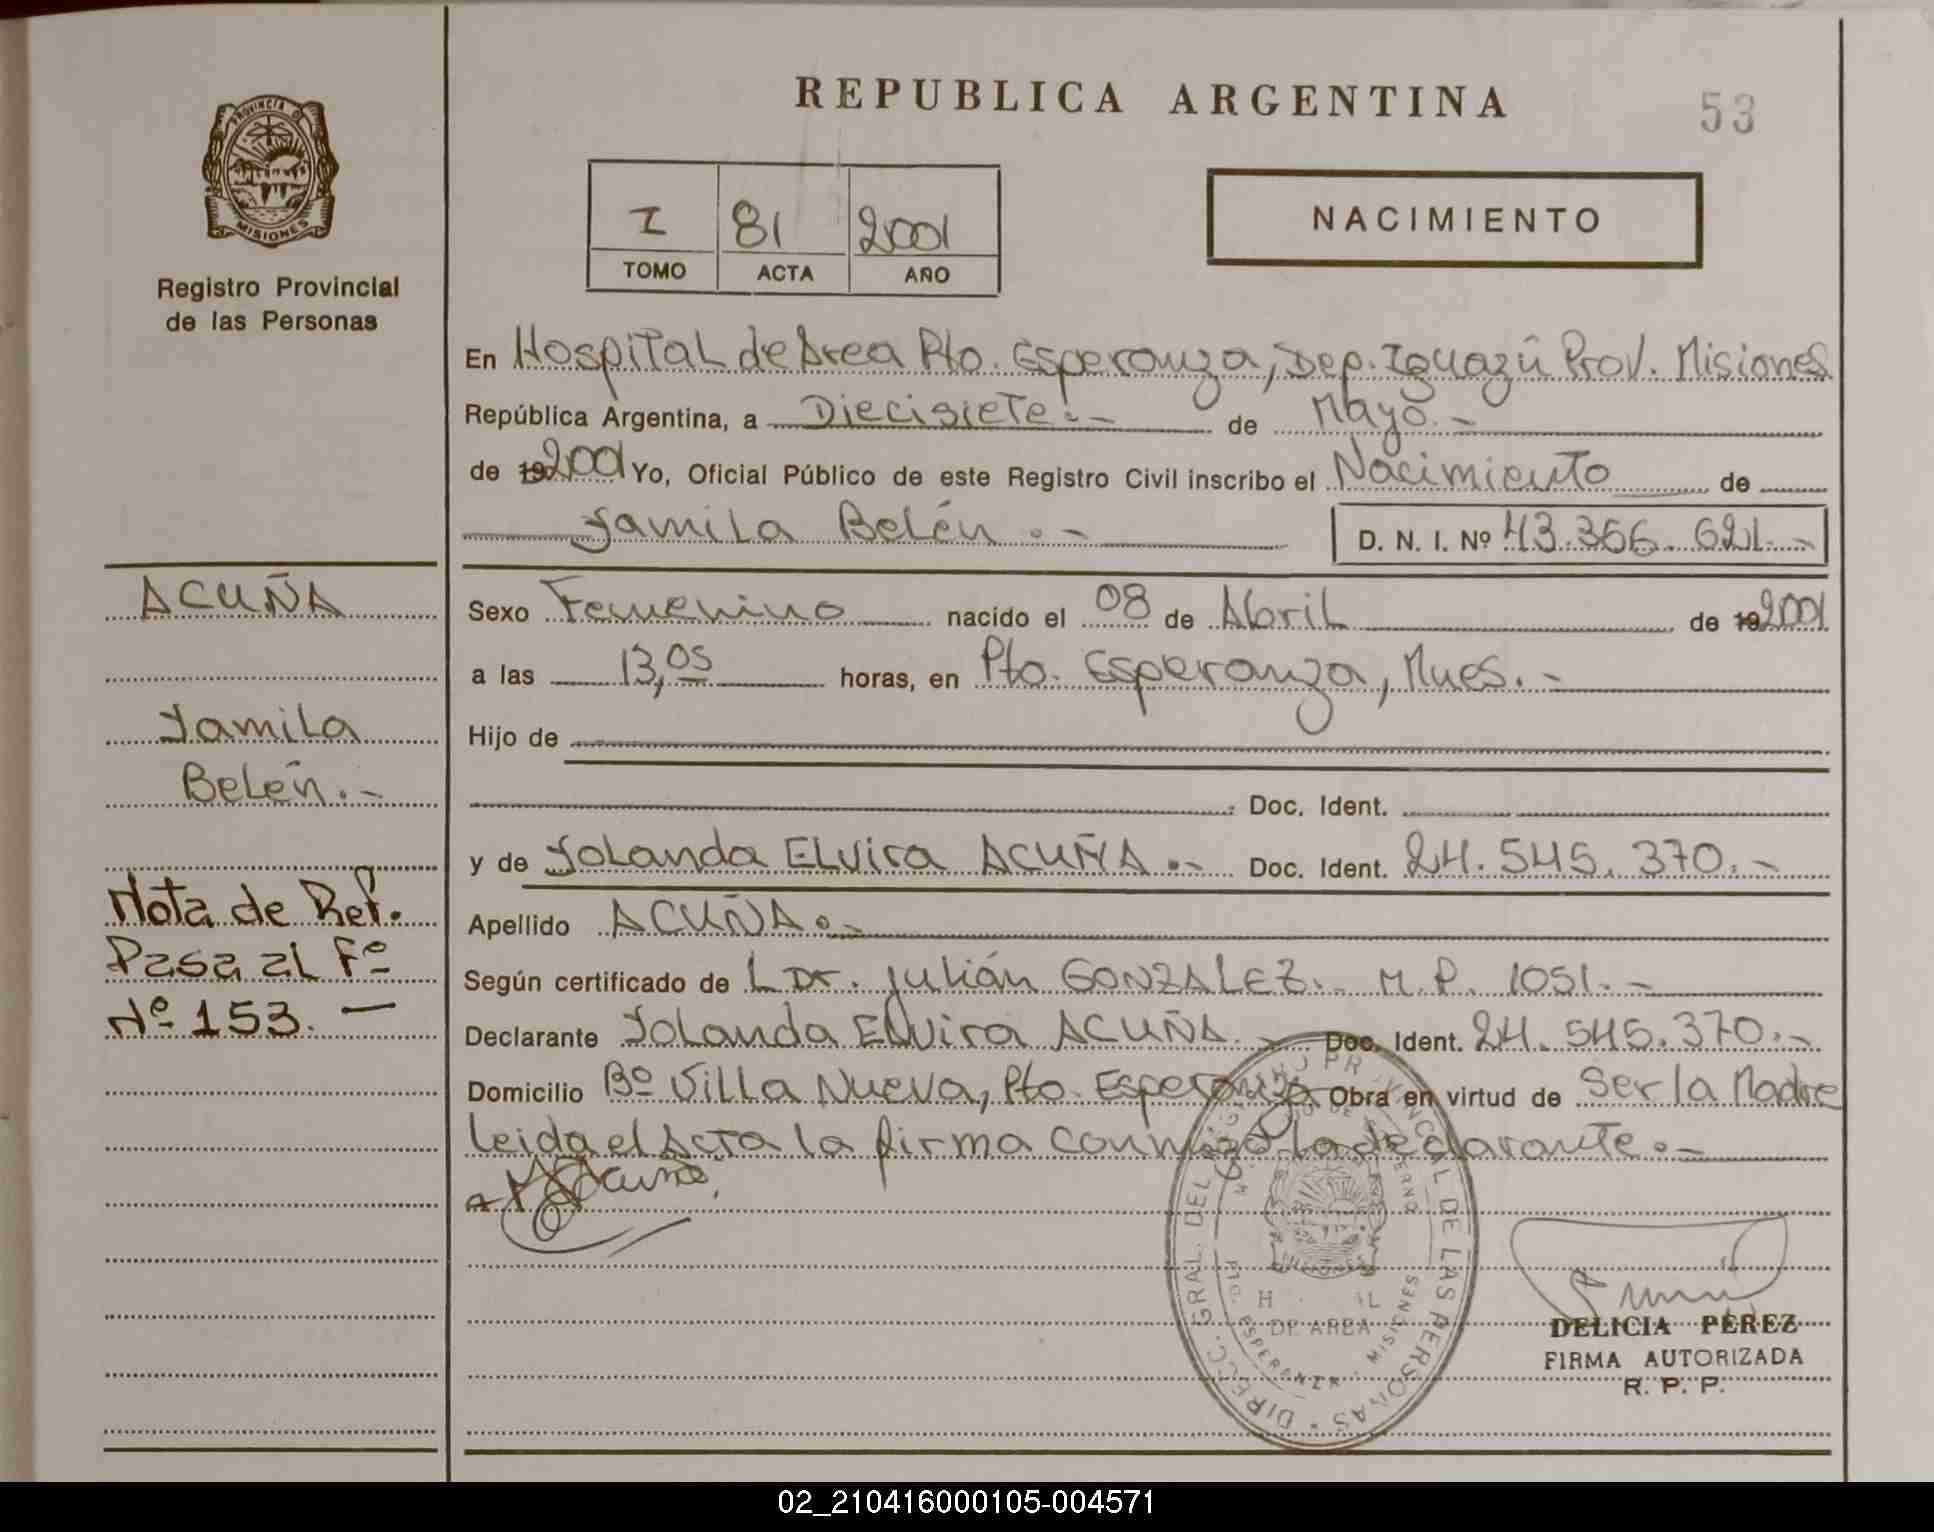 REPUBLICA ARGENTINA
53
PROVINCIA DE
MISIONES
Registro Provincial
de las Personas
I 81 2001
TOMO ACTA AÑO
NACIMIENTO
En Hospital de Area Pto. Esperanza, Dep. Iguazú Prov. Misiones
República Argentina, a Diecisiete.- de Mayo.-
de 192001 Yo, Oficial Público de este Registro Civil inscribo el Nacimiento de
Yamila Belén.- D. N. I. Nº 43.366.621.-
ACUÑA
Yamila
Belén.-
Nota de Ref.
Pasa al Fº
Nº 153.-
Sexo Femenino nacido el 08 de Abril de 192001
a las 13,05 horas, en Pto. Esperanza, Mnes.-
Hijo de
Doc. Ident.
y de Yolanda Elvira ACUÑA.- Doc. Ident. 24.545.370.-
Apellido ACUÑA.-
Según certificado de L Dr. Julián GONZALEZ.- M.P. 1051.-
Declarante Yolanda Elvira ACUÑA.- Doc. Ident. 24.545.370.-
Domicilio Bº Villa Nueva, Pto. Esperanza Obra en virtud de Ser la Madre
leida el Acta la firma conmigo la declarante.-
DIRECC. GRAL. DEL REGISTRO PROVINCIAL DE LAS PERSONAS
DE AREA
PTO. ESPERANZA - MISIONES
DELICIA PEREZ
FIRMA AUTORIZADA
R. P. P.
02_210416000105-004571